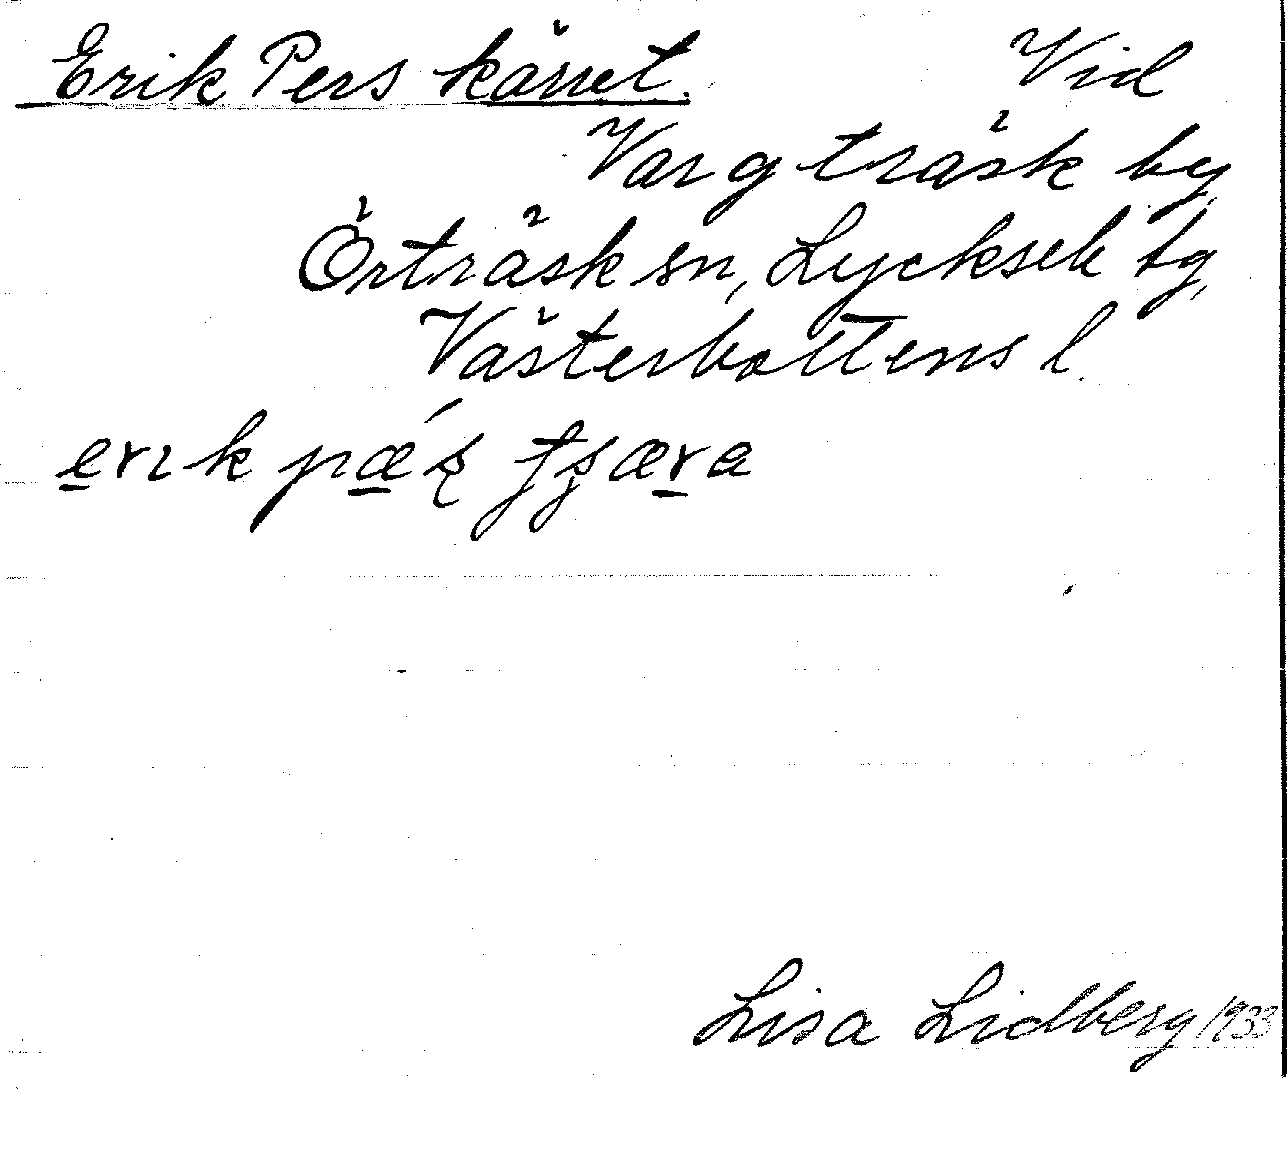 Erik Pers kärret. Vid
Vargträsk by,
Örträsk sn, Lycksele tg,
Västerbottens l.
erik pǽʂ
Lisa Lidberg 1933